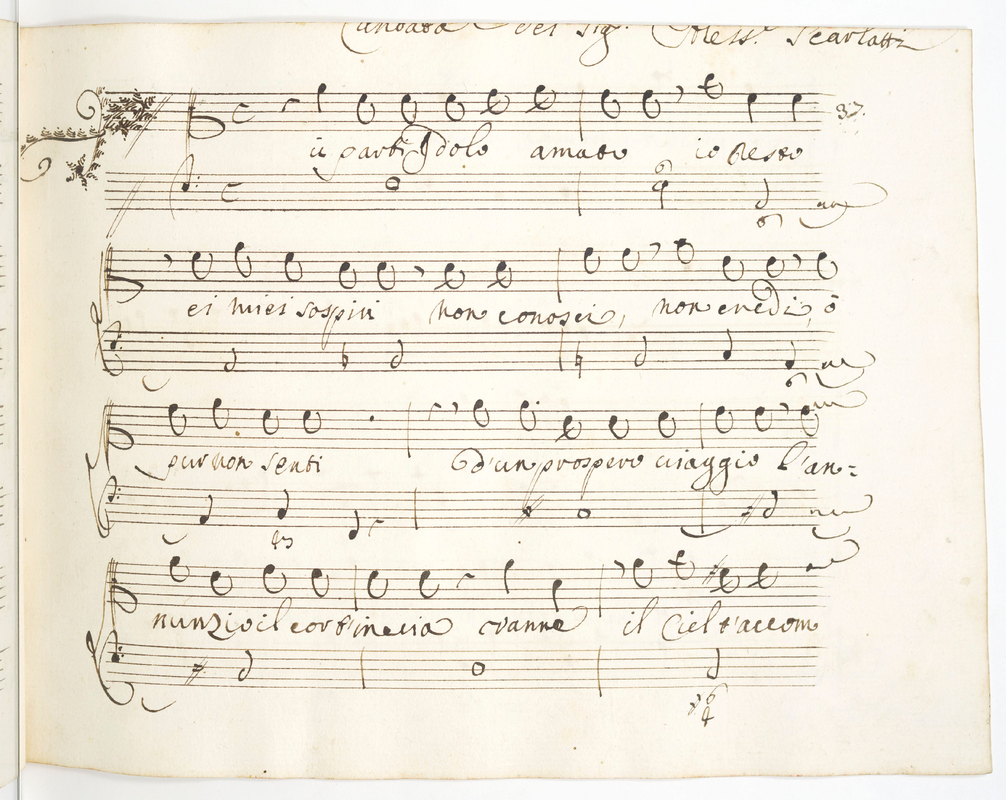 Cantata del Sig.r Aless.o Scarlatti
37.
Tu parti Idolo amato io resto
6
6
ei miei sospiri non conosci, non credi, ò
6
pur non senti E d'un prospero viaggio l'an=
43
nunzio il cor t'invia vanne il Ciel t'accom
6
4